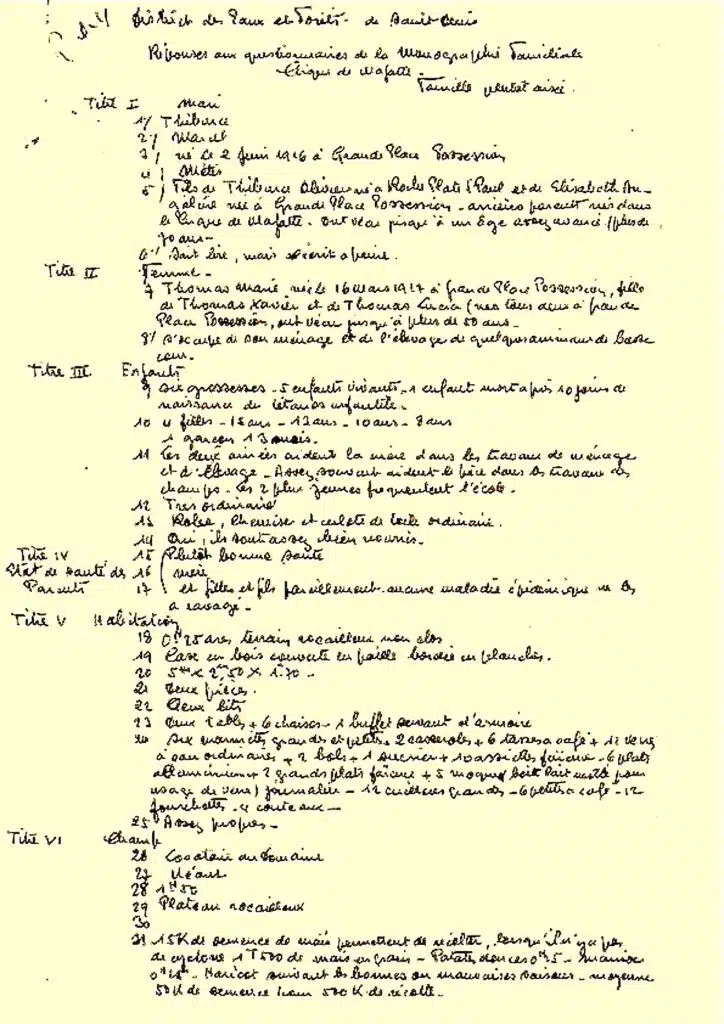 District des Eaux et Forêts de Saint Denis
Réponses aux questionnaires de la Monographie Familiale
Cirque de Mafatte.
Famille plutôt aisée.
Titre I Mari
1/ Thiburce
2/ Marcel
3/ né le 2 Juin 1916 à Grande Place Possession
4/ Métis
5/ Fils de Thiburce né à Roche Plate St Paul et de Elisabeth An-
gèline née à Grande Place Possession - arrières parents nés dans
le Cirque de Mafatte. Ont vécu jusqu'à un âge assez avancé (plus de
70 ans -
6/ Sait lire, mais écrit à peine.
Titre II Femme -
7 Thomas Marie née le 16 Mars 1917 à Grande Place Possession, fille
de Thomas Xavier et de Thomas Lucia (nés tous deux à Grande
Place Possession, ont vécu jusqu'à plus de 50 ans -
8/ s'occupe de son ménage et de l'élevage de quelques animaux de basse
cour.
Titre III Enfants
9 Six grossesses - 5 enfants vivants - 1 enfant mort après 10 jours de
naissance du tétanos infantile.
10 4 filles - 15 ans - 12 ans - 10 ans - 7 ans
1 garçon 13 mois.
11 Les deux ainées aident la mère dans les travaux de ménage
et d'élevage - Assez souvent aident le père dans les travaux des
champs. Les 2 plus jeunes fréquentent l'école.
12 Très ordinaire
13 Robes, chemises et culotte de toile ordinaire.
14 Oui, ils sont assez bien nourris.
Titre IV 15 Plutôt bonne santé
Etat de santé des 16 mère
Parents 17 et filles et fils pareillement - aucune maladie épidémique ne les
a ravagé -
Titre V Habitation
18 0H 25 ares terrain rocailleux non clos
19 Case en bois couverte en paille bordée en planches.
20 5m x 2m,50 x 1.70 -
21 Deux pièces.
22 Deux lits
23 Deux tables + 6 chaises - 1 buffet servant d'armoire
24 Six marmites grandes et petites - 2 casseroles + 6 tasses à café + 12 verres
à eau ordinaires + 2 bols + 1 sucrier + 10 assiettes faïence - 6 plats
alluminium + 2 grands plats faïence + 5 moques (boîte lait vide pour
usage de verre) journalier - 12 cuillères grandes - 6 petites à café - 12
fourchettes - 4 couteaux -
25 Assez propres -
Titre VI Champ
26 Locataire du Domaine
27 Néant
28 1H 50
29 Plateau rocailleux
30
31 15K de semence de maïs permettent de récolter, lorsqu'il n'y a pas
de cyclone 1T500 de maïs en grain - Patates douces - manioc
Haricot suivant les bonnes ou mauvaises saisons - moyenne
50K de semence pour 500K de récolte -